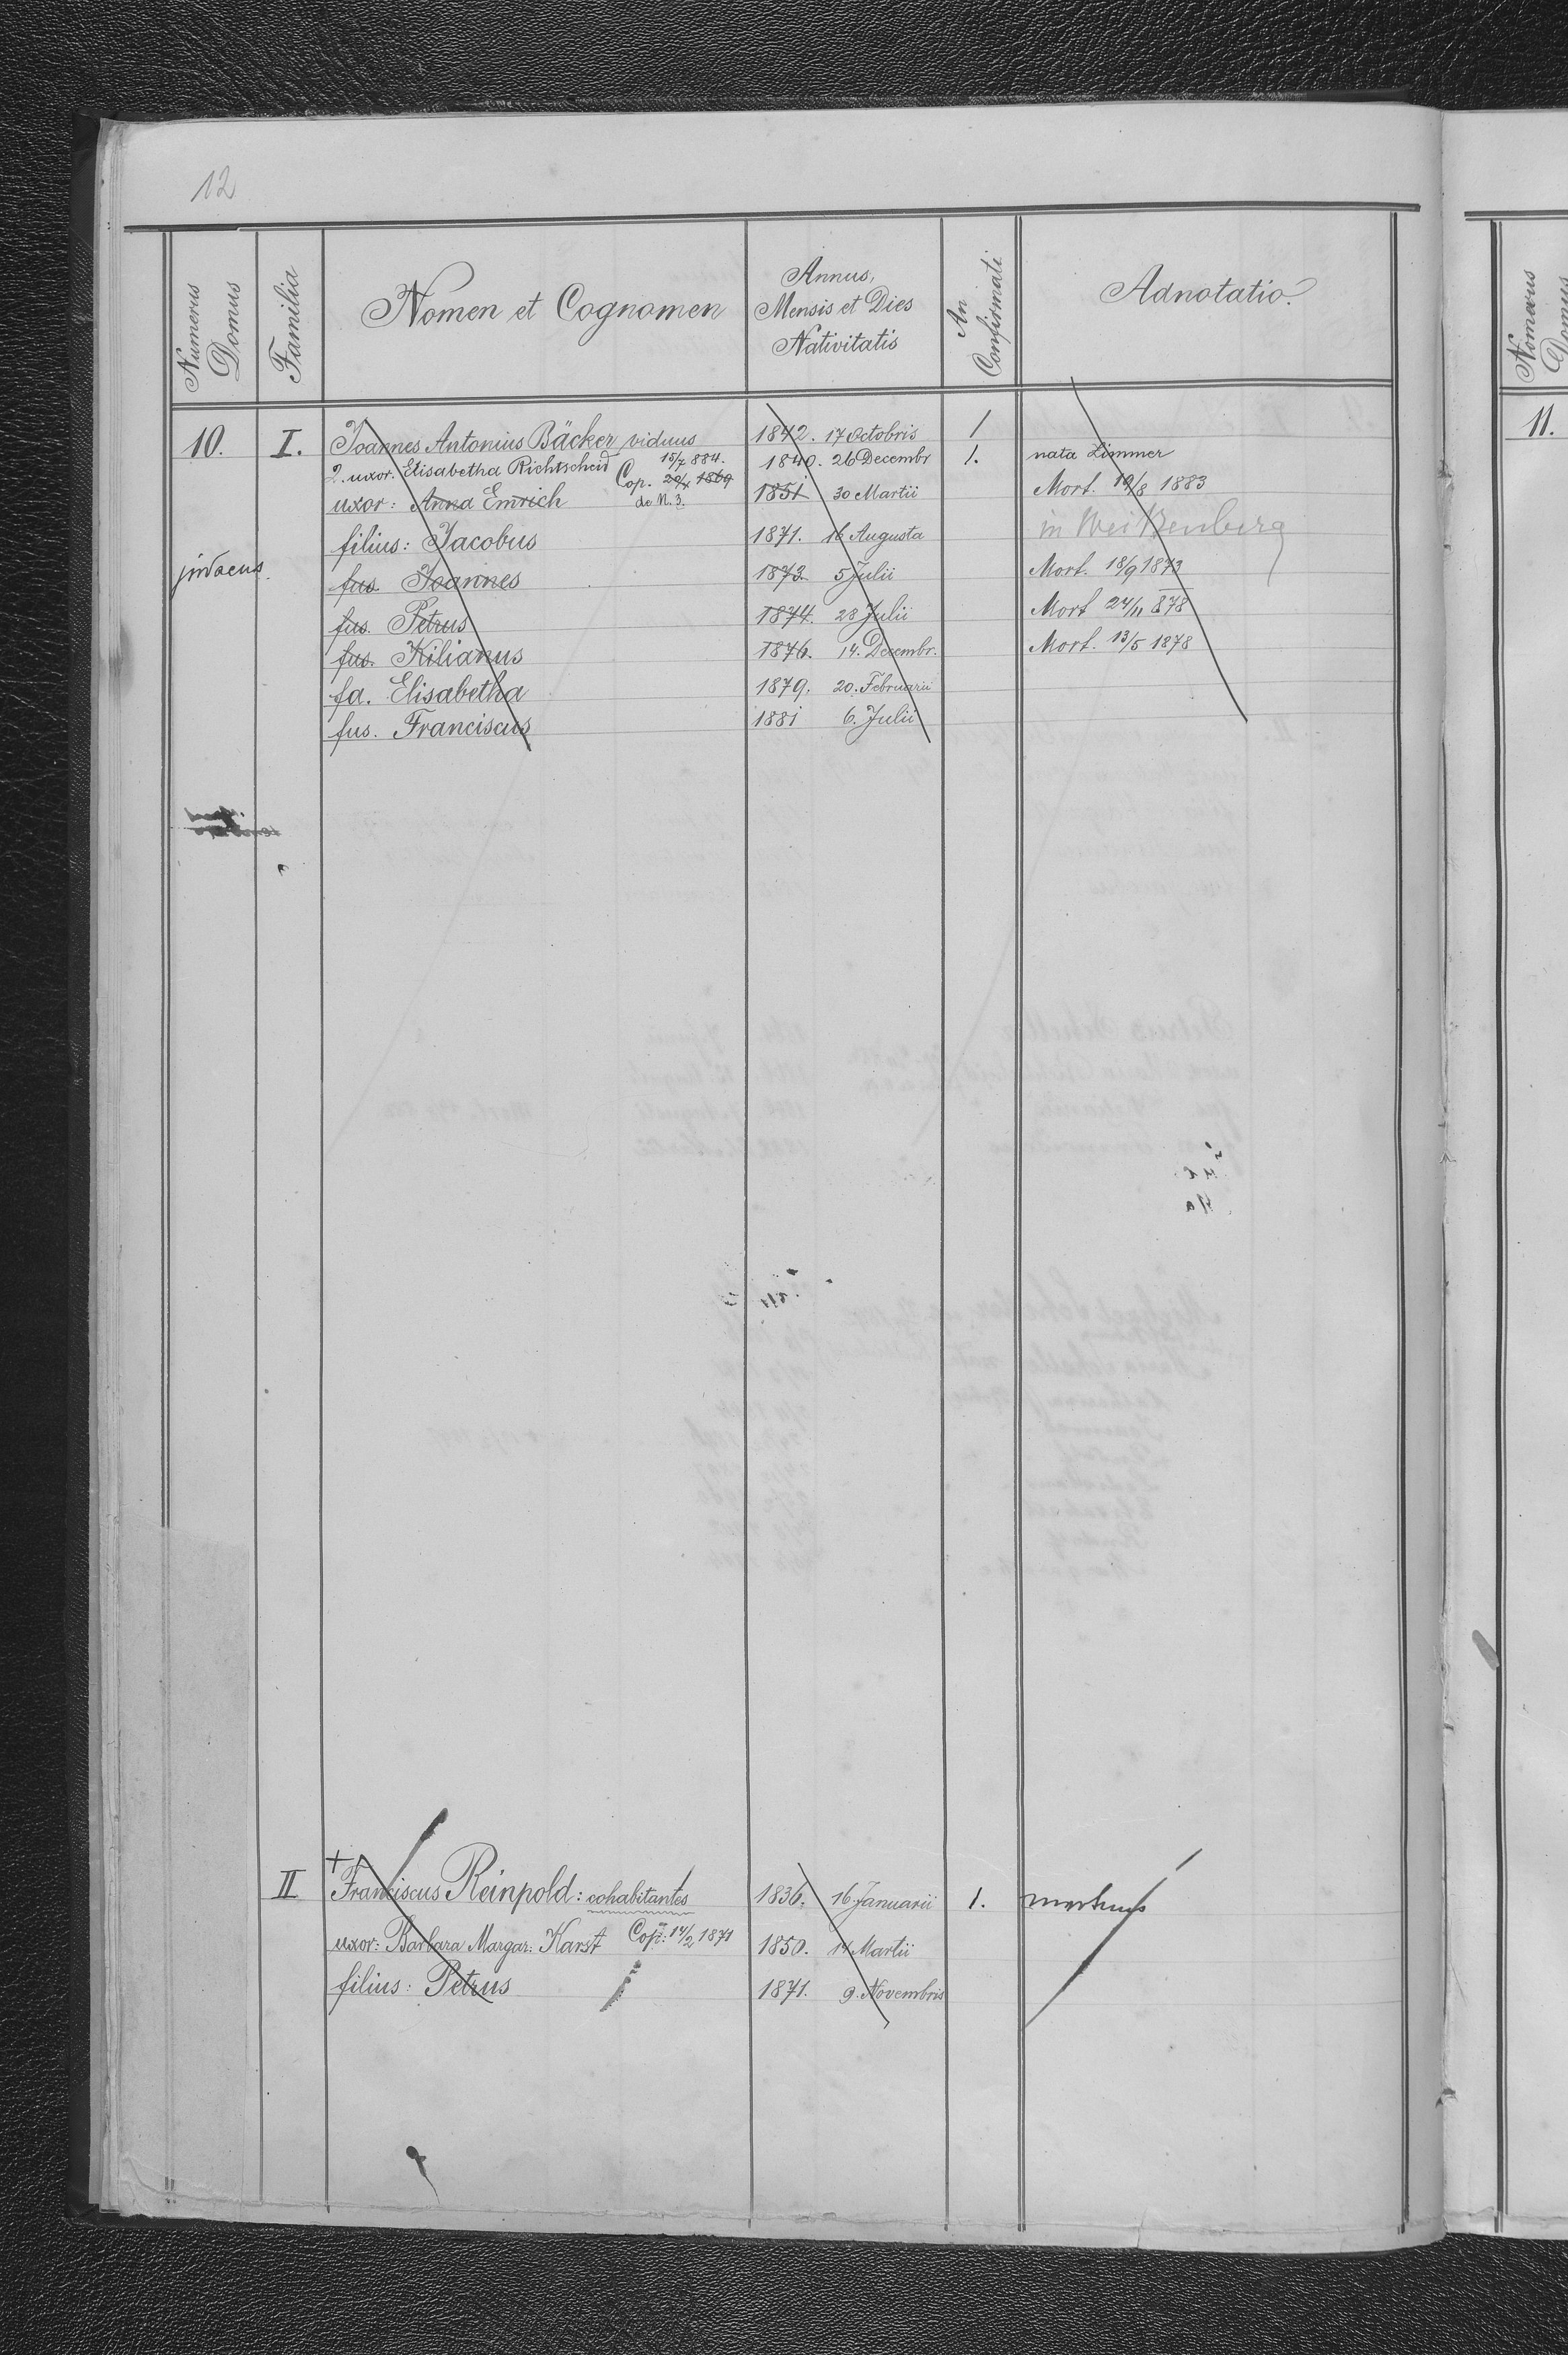 12
Numerus Domus
Familia
Nomen et Cognomen
Annus, Mensis et Dies Nativitatis
An Confirmati
Adnotatio.
Nomerus Domus
10. I. Joannes Antonius Bäcker, viduus 1842. 17 Octobris 1
11.
2. uxor. Elisabetha Richtscheid Cop. 15/7 884. 1840. 26 Decembr 1. nata Limmer
uxor: Anna Emrich 20/x 1869 de N. 3. 1851 30 Martii Mort. 19/8 1883
filius: Jacobus 1871. 16 Augusta in Weißenberg
judaeus. fus. Joannes 1873. 5 Julii Mort. 18/9 1873
fus. Petrus 1874. 28 Julii Mort 24/11 878
fus. Kilianus 1876. 14. Decembr. Mort. 13/5 1878
fa. Elisabetha 1879. 20. Februarii
fus. Franciscus 1881 6. Julii
II + Franciscus Reinpold: cohabitantes 1836. 16 Januarii 1. mortuus
uxor: Barbara Margar: Karst Cop: 14/2 1871 1850. 14 Martii
filius: Petrus 1871. 9. Novembris